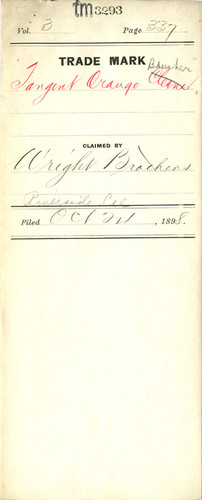 tm3293
Vol. 3 Page 337
TRADE MARK
Tangent Orange Cleaner Brusher
CLAIMED BY
Wright Brothers
Riverside Cal
Filed Oct 24, 1898.